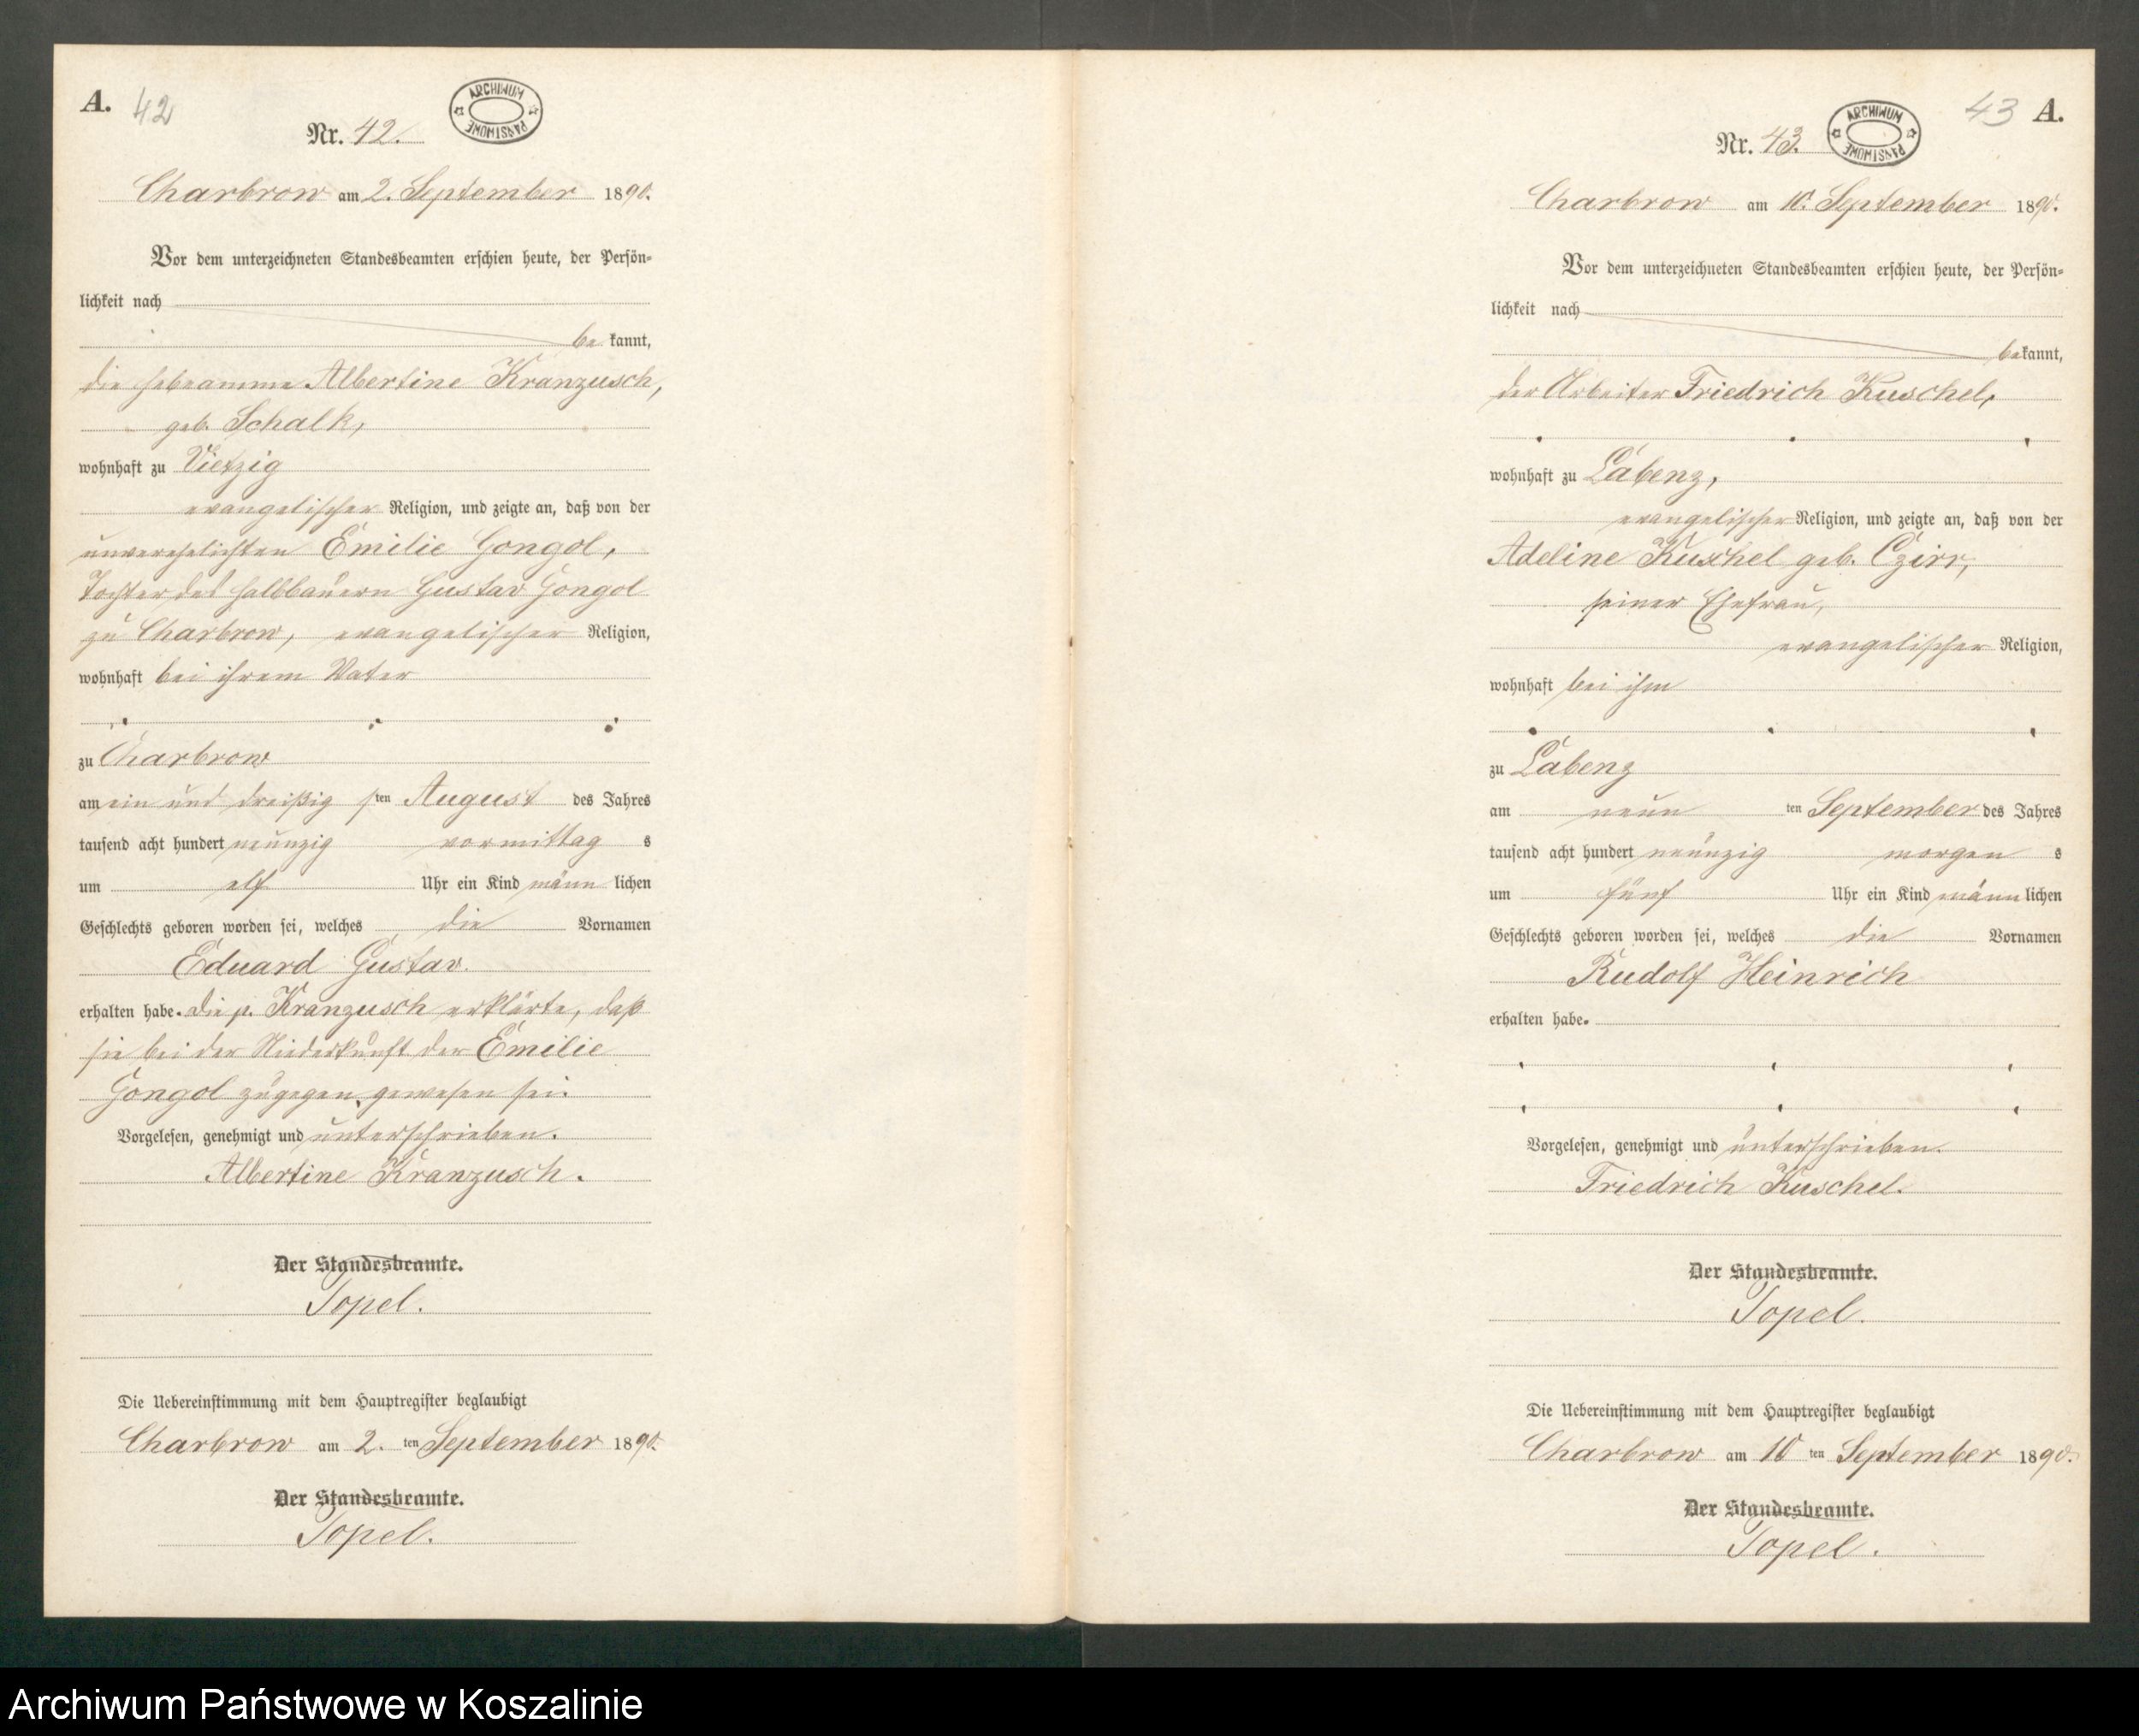 A. 42
ARCHIWUM PAŃSTWOWE
Nr. 42.
Charbrow am 2. September 1890.
Vor dem unterzeichneten Standesbeamten erschien heute, der Persön-
lichkeit nach
be kannt,
die Hebeamme Albertine Kranzusch,
geb. Schalk,
wohnhaft zu Vietzig
evangelischer Religion, und zeigte an, daß von der
unverehelichten Emilie Gongol,
Tochter des Halbbauern Gustav Gongol
zu Charbrow, evangelischer Religion,
wohnhaft bei ihrem Vater
zu Charbrow
am ein und dreißig sten August des Jahres
tausend acht hundert neunzig vormittag s
um elf Uhr ein Kind männ lichen
Geschlechts geboren worden sei, welches die Vornamen
Eduard Gustav.
erhalten habe. Die p. Kranzusch erklärte, daß
sie bei der Niederkunft der Emilie
Gongol zugegen gewesen sei.
Vorgelesen, genehmigt und unterschrieben.
Albertine Kranzusch.
Der Standesbeamte.
Topel.
Die Uebereinstimmung mit dem Hauptregister beglaubigt
Charbrow am 2. ten September 1890.
Der Standesbeamte.
Topel.
43 A.
ARCHIWUM PAŃSTWOWE
Nr. 43.
Charbrow am 10. September 1890.
Vor dem unterzeichneten Standesbeamten erschien heute, der Persön-
lichkeit nach
be kannt,
der Arbeiter Friedrich Kuschel,
wohnhaft zu Labenz,
evangelischer Religion, und zeigte an, daß von der
Adeline Kuschel geb. Czirr,
seiner Ehefrau,
evangelischer Religion,
wohnhaft bei ihm
zu Labenz
am neun ten September des Jahres
tausend acht hundert neunzig morgen s
um fünf Uhr ein Kind männ lichen
Geschlechts geboren worden sei, welches die Vornamen
Rudolf Heinrich
erhalten habe.
Vorgelesen, genehmigt und unterschrieben.
Friedrich Kuschel.
Der Standesbeamte.
Topel.
Die Uebereinstimmung mit dem Hauptregister beglaubigt
Charbrow am 10 ten September 1890.
Der Standesbeamte.
Topel.
Archiwum Państwowe w Koszalinie